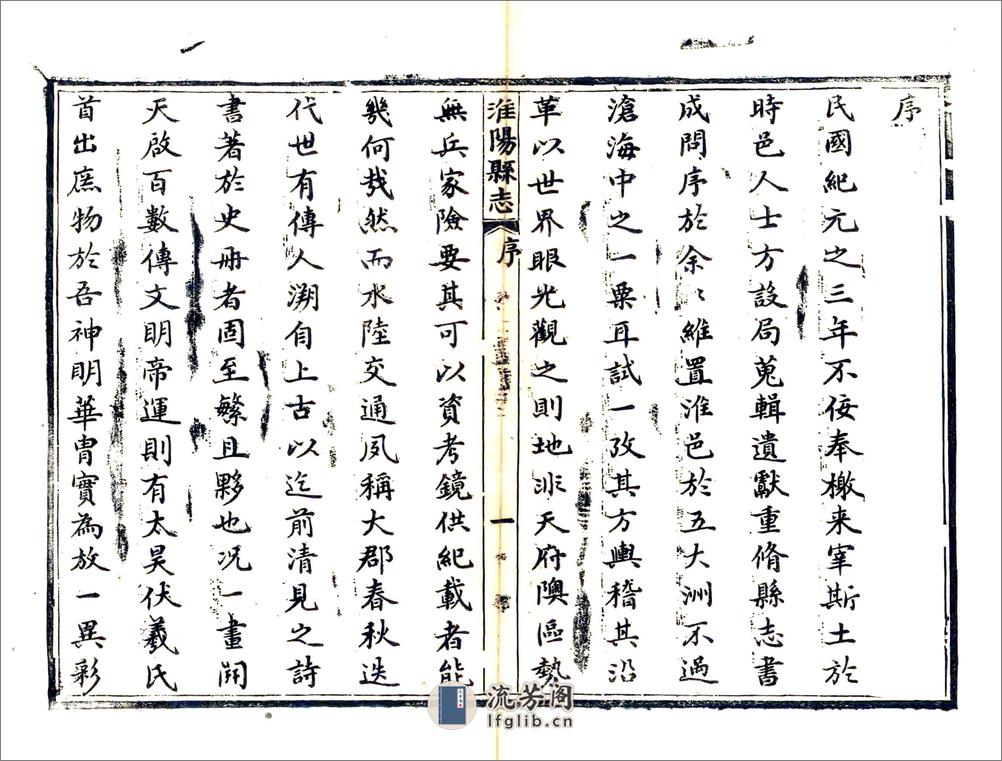 序
民國紀元之三年不佞奉檄来宰斯土於
時邑人士方設局蒐輯遺獻重脩縣志書
成問序於余〻維置淮邑於五大洲不過
滄海中之一粟耳試一攷其方輿稽其沿
革以世界眼光觀之則地非天府隩區勢
淮陽縣志 序 一
無兵家險要其可以資考鏡供紀載者能
幾何哉然而水陸交通夙稱大郡春秋迭
代世有傳人溯自上古以迄前清見之詩
書著於史冊者固至繁且夥也况一畫開
天啟百數傳文明帝運則有太昊伏羲氏
首出庶物於吾神明華胄實為放一異彩
流芳阁
lfglib.cn